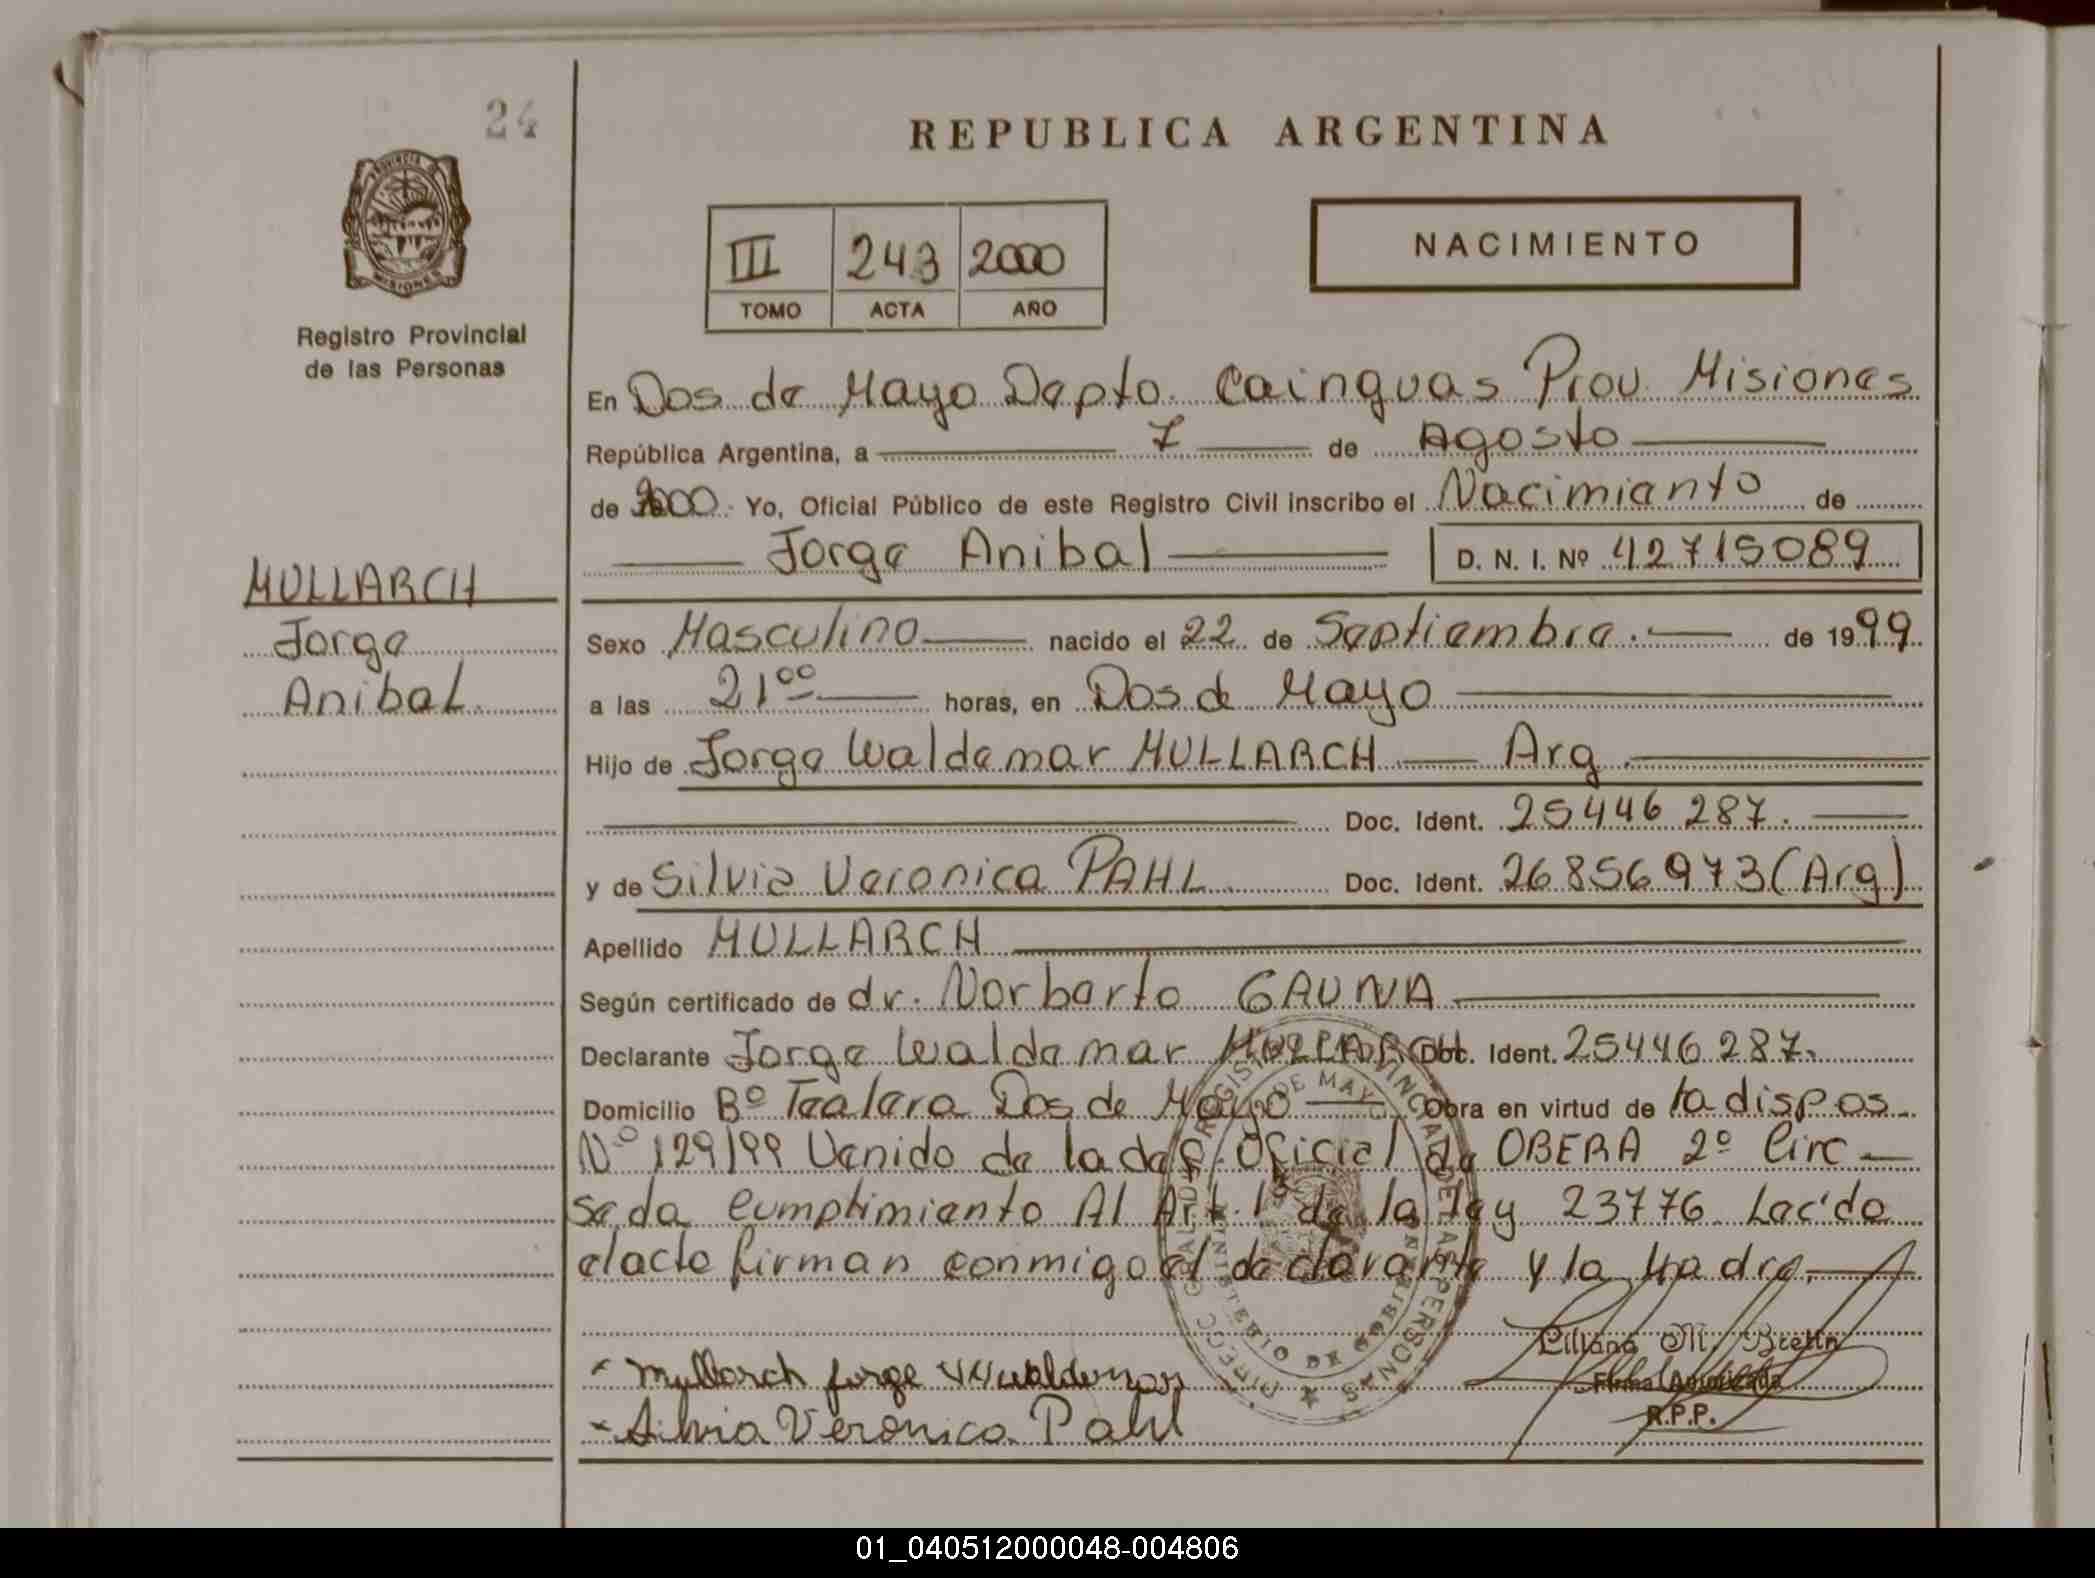 24
REPUBLICA ARGENTINA
PROVINCIA
MISIONES
III 243 2000
TOMO ACTA AÑO
NACIMIENTO
Registro Provincial
de las Personas
En Dos de Mayo Depto. Cainguas Prov. Misiones
República Argentina, a 7 de Agosto
de 2000. Yo, Oficial Público de este Registro Civil inscribo el Nacimiento de
Jorge Anibal D. N. I. Nº 42715089
MULLARCH
Jorge
Anibal
Sexo Masculino nacido el 22 de Septiembre. de 1999
a las 21⁰⁰ horas, en Dos de Mayo
Hijo de Jorge Waldemar MULLARCH Arg
Doc. Ident. 25446 287.
y de Silvia Veronica PAHL Doc. Ident. 26856973 (Arg)
Apellido MULLARCH
Según certificado de dr. Norberto GAUNA
Declarante Jorge Waldemar MULLARCH Doc. Ident. 25446287.
Domicilio Bº Tealera Dos de Mayo Obra en virtud de la dispos
Nº 129/99 Venido de la del. Oficial de OBERA 2º Circ
se da cumplimiento Al Art. 1º de la ley 23776 Lec'do
elacto firman conmigo el declarante y la Madre.
Mullarch Jorge Waldemar
Silvia Veronica Pahl
Liliana M. Brettn
Firma Autorizada
R.P.P.
DIRECC GRAL DE REGISTRO PROVINCIAL DE LAS PERSONAS
2 DE MAYO
MINISTERIO DE GOBIERNO
01_040512000048-004806